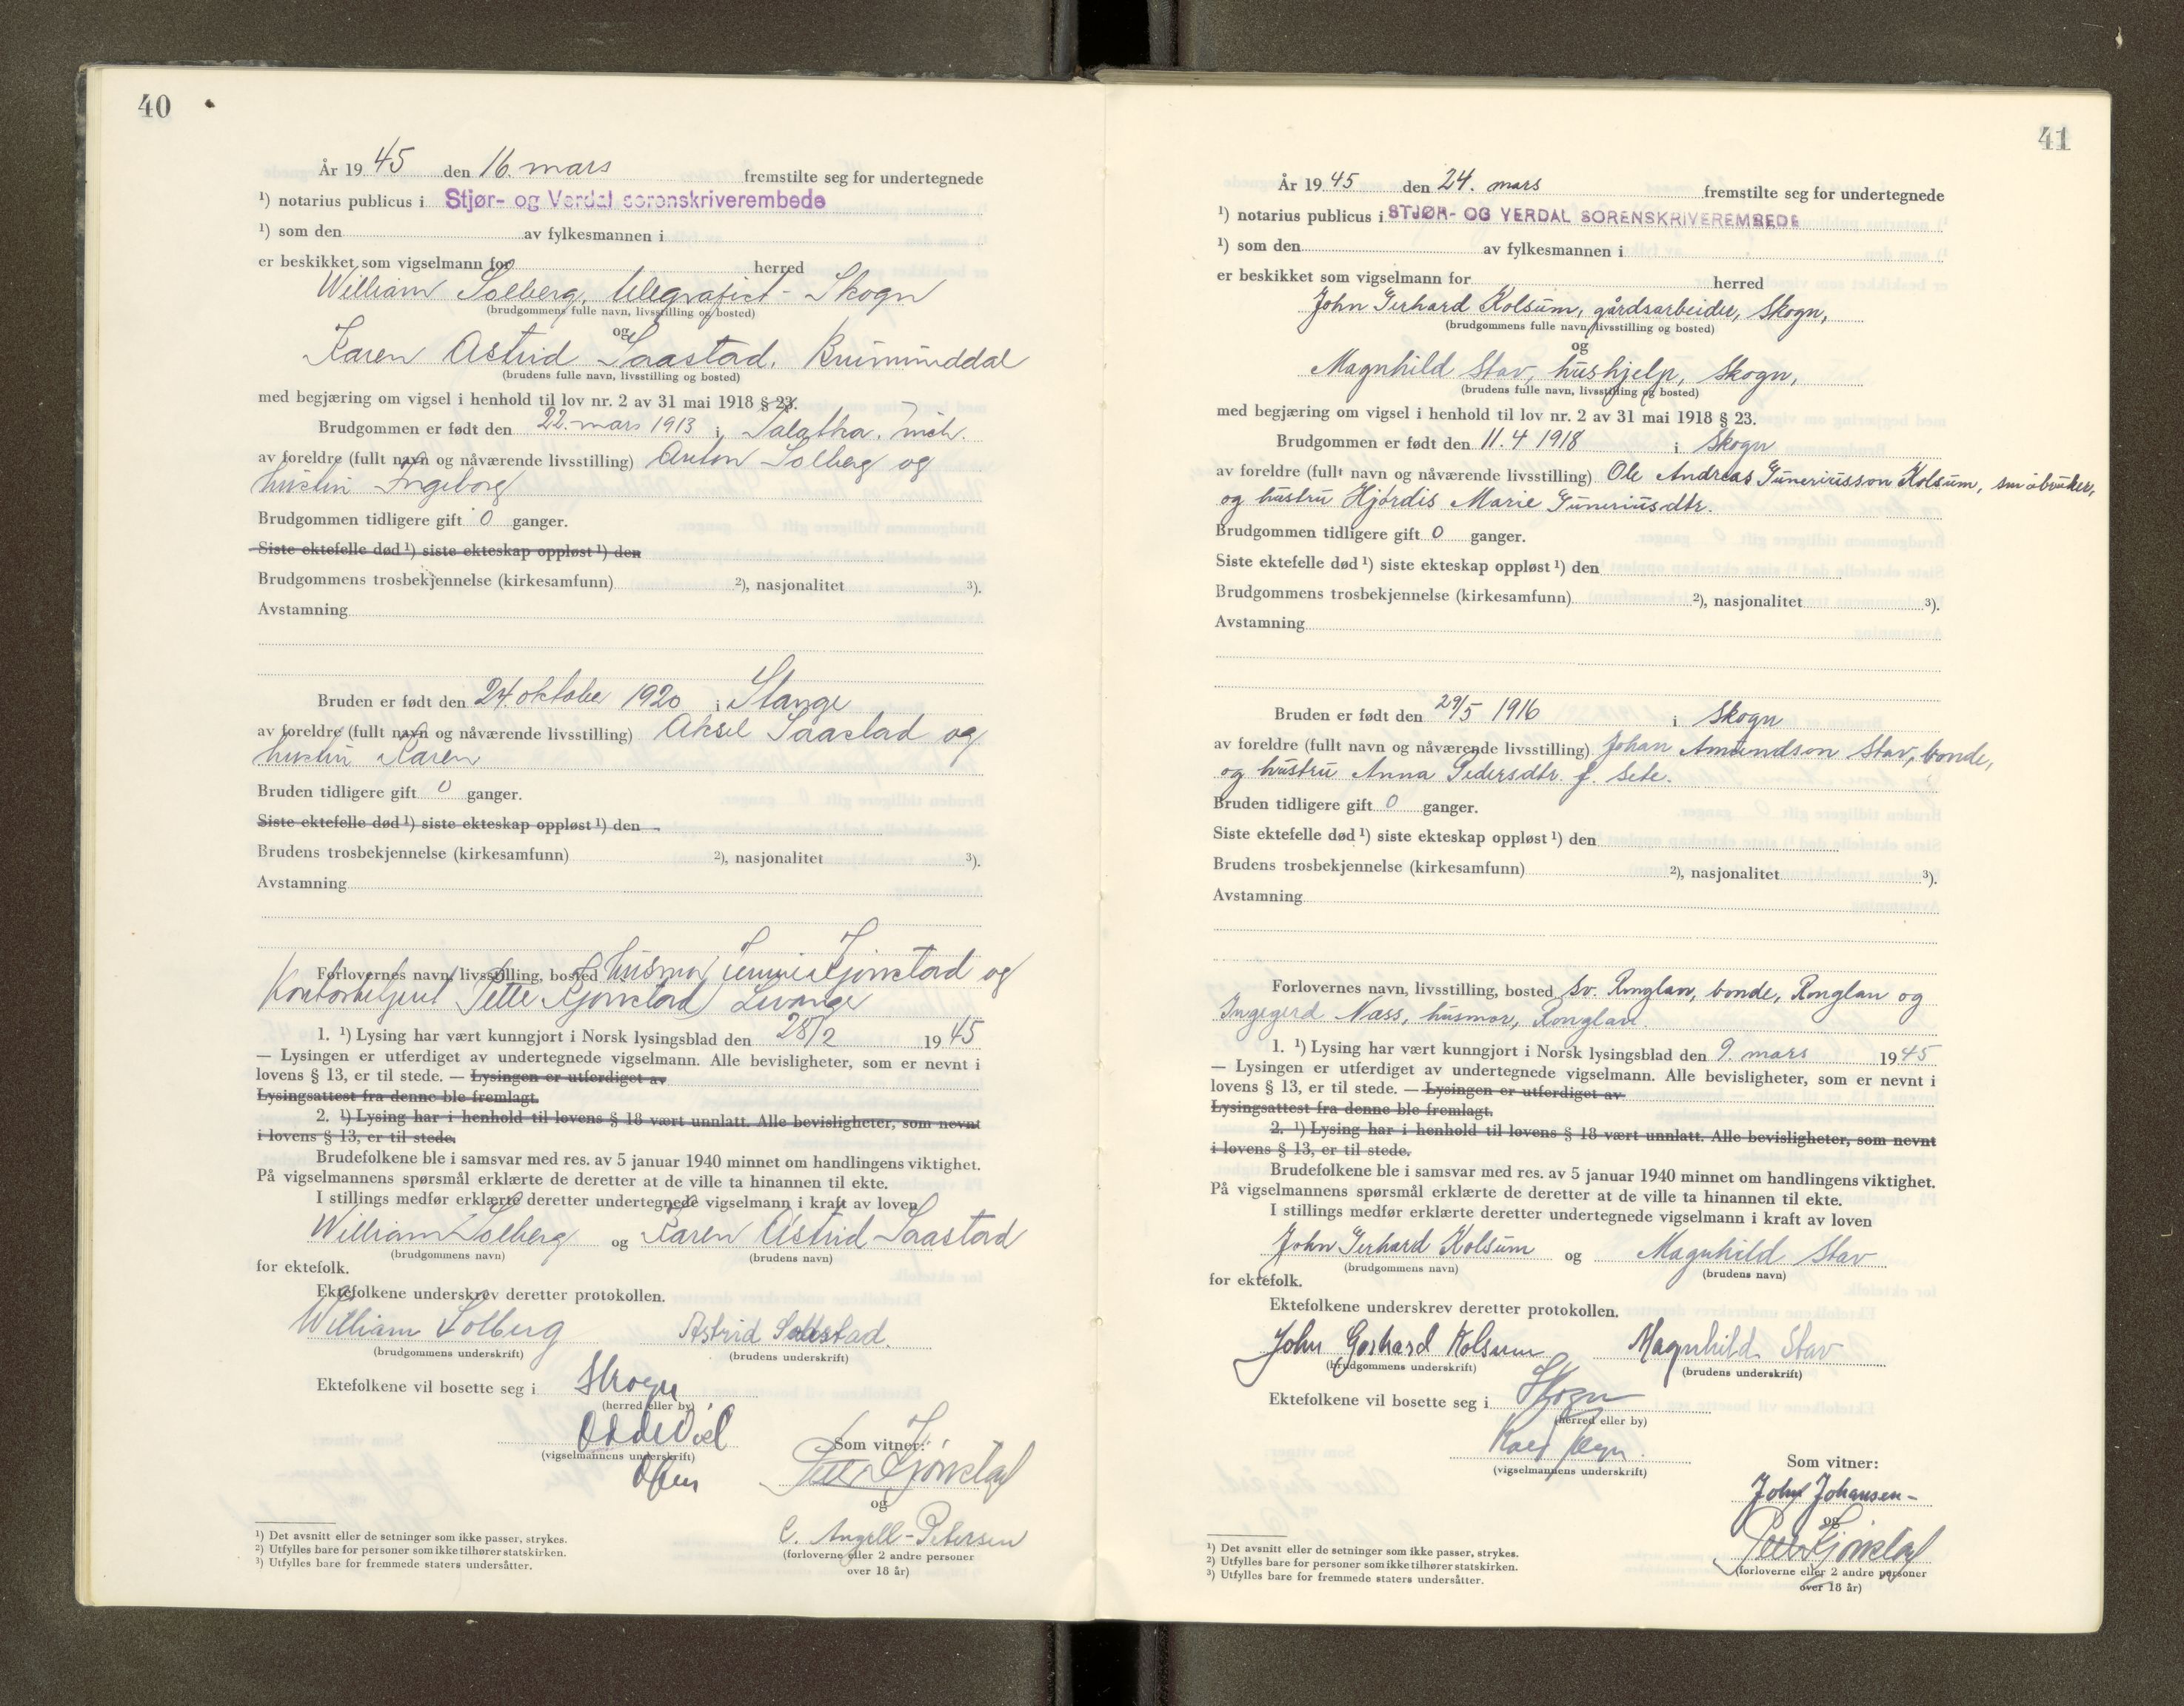 40
År 1945 den 16. mars fremstilte seg for undertegnede
¹) notarius publicus i Stjør- og Verdal sorenskriverembede
¹) som den av fylkesmannen i
er beskikket som vigselmann for herred
William Solberg, telegrafist - Skogn
(brudgommens fulle navn, livsstilling og bosted)
og
Karen Astrid Saastad, Brumunddal
(brudens fulle navn, livsstilling og bosted)
med begjæring om vigsel i henhold til lov nr. 2 av 31 mai 1918 § 23.
Brudgommen er født den 22. mars 1913 i Calatha. mich.
av foreldre (fullt navn og nåværende livsstilling) Anton Solberg og
hustru Ingeborg
Brudgommen tidligere gift 0 ganger.
Siste ektefelle død ¹) siste ekteskap oppløst ¹) den
Brudgommens trosbekjennelse (kirkesamfunn) ²), nasjonalitet ³).
Avstamning
Bruden er født den 24. oktober 1920 i Stange
av foreldre (fullt navn og nåværende livsstilling) Aksel Saastad og
hustru Karen
Bruden tidligere gift 0 ganger.
Siste ektefelle død ¹) siste ekteskap oppløst ¹) den
Brudens trosbekjennelse (kirkesamfunn) ²), nasjonalitet ³).
Avstamning
Forlovernes navn, livsstilling, bosted husmor Jennie Gjønstad og
Kontorbetjent Petter Gjønstad, Levanger
1. ¹) Lysing har vært kunngjort i Norsk lysingsblad den 28/2 1945
— Lysingen er utferdiget av undertegnede vigselmann. Alle bevisligheter, som er nevnt i
lovens § 13, er til stede. — Lysingen er utferdiget av
Lysingsattest fra denne ble fremlagt.
2. ¹) Lysing har i henhold til lovens § 18 vært unnlatt. Alle bevisligheter, som nevnt
i lovens § 13, er til stede.
Brudefolkene ble i samsvar med res. av 5 januar 1940 minnet om handlingens viktighet.
På vigselmannens spørsmål erklærte de deretter at de ville ta hinannen til ekte.
I stillings medfør erklærte deretter undertegnede vigselmann i kraft av loven
William Solberg og Karen Astrid Saastad
(brudgommens navn) (brudens navn)
for ektefolk.
Ektefolkene underskrev deretter protokollen.
William Solberg Astrid Saastad.
(brudgommens underskrift) (brudens underskrift)
Ektefolkene vil bosette seg i Skogn
(herred eller by)
(vigselmannens underskrift)
Som vitner:
Petter Gjønstad
og
C. Angell-Petersen
(forloverne eller 2 andre personer
over 18 år)
¹) Det avsnitt eller de setninger som ikke passer, strykes.
²) Utfylles bare for personer som ikke tilhører statskirken.
³) Utfylles bare for fremmede staters undersåtter.
41
År 1945 den 24. mars fremstilte seg for undertegnede
¹) notarius publicus i STJØR- OG VERDAL SORENSKRIVEREMBEDE
¹) som den av fylkesmannen i
er beskikket som vigselmann for herred
John Gerhard Kolsum, gårdsarbeider, Skogn,
(brudgommens fulle navn, livsstilling og bosted)
og
Magnhild Stav, hushjelp, Skogn,
(brudens fulle navn, livsstilling og bosted)
med begjæring om vigsel i henhold til lov nr. 2 av 31 mai 1918 § 23.
Brudgommen er født den 11. 4 1918 i Skogn
av foreldre (fullt navn og nåværende livsstilling) Ole Andreas Guneriusson Kolsum, småbruker,
og hustru Hjørdis Marie Guneriusdtr.
Brudgommen tidligere gift 0 ganger.
Siste ektefelle død ¹) siste ekteskap oppløst ¹) den
Brudgommens trosbekjennelse (kirkesamfunn) ²), nasjonalitet ³).
Avstamning
Bruden er født den 29/5 1916 i Skogn
av foreldre (fullt navn og nåværende livsstilling) Johan Amundson Stav, bonde,
og hustru Anna Pedersdtr. f. Sete.
Bruden tidligere gift 0 ganger.
Siste ektefelle død ¹) siste ekteskap oppløst ¹) den
Brudens trosbekjennelse (kirkesamfunn) ²), nasjonalitet ³).
Avstamning
Forlovernes navn, livsstilling, bosted Sv. Ronglan, bonde, Ronglan og
Ingegerd Næss, husmor, Ronglan.
1. ¹) Lysing har vært kunngjort i Norsk lysingsblad den 9. mars 1945
— Lysingen er utferdiget av undertegnede vigselmann. Alle bevisligheter, som er nevnt i
lovens § 13, er til stede. — Lysingen er utferdiget av
Lysingsattest fra denne ble fremlagt.
2. ¹) Lysing har i henhold til lovens § 18 vært unnlatt. Alle bevisligheter, som nevnt
i lovens § 13, er til stede.
Brudefolkene ble i samsvar med res. av 5 januar 1940 minnet om handlingens viktighet.
På vigselmannens spørsmål erklærte de deretter at de ville ta hinannen til ekte.
I stillings medfør erklærte deretter undertegnede vigselmann i kraft av loven
John Gerhard Kolsum og Magnhild Stav
(brudgommens navn) (brudens navn)
for ektefolk.
Ektefolkene underskrev deretter protokollen.
John Gerhard Kolsum Magnhild Stav
(brudgommens underskrift) (brudens underskrift)
Ektefolkene vil bosette seg i Skogn
(herred eller by)
(vigselmannens underskrift)
Som vitner:
John Johansen
og
Petter Gjønstad
(forloverne eller 2 andre personer
over 18 år)
¹) Det avsnitt eller de setninger som ikke passer, strykes.
²) Utfylles bare for personer som ikke tilhører statskirken.
³) Utfylles bare for fremmede staters undersåtter.